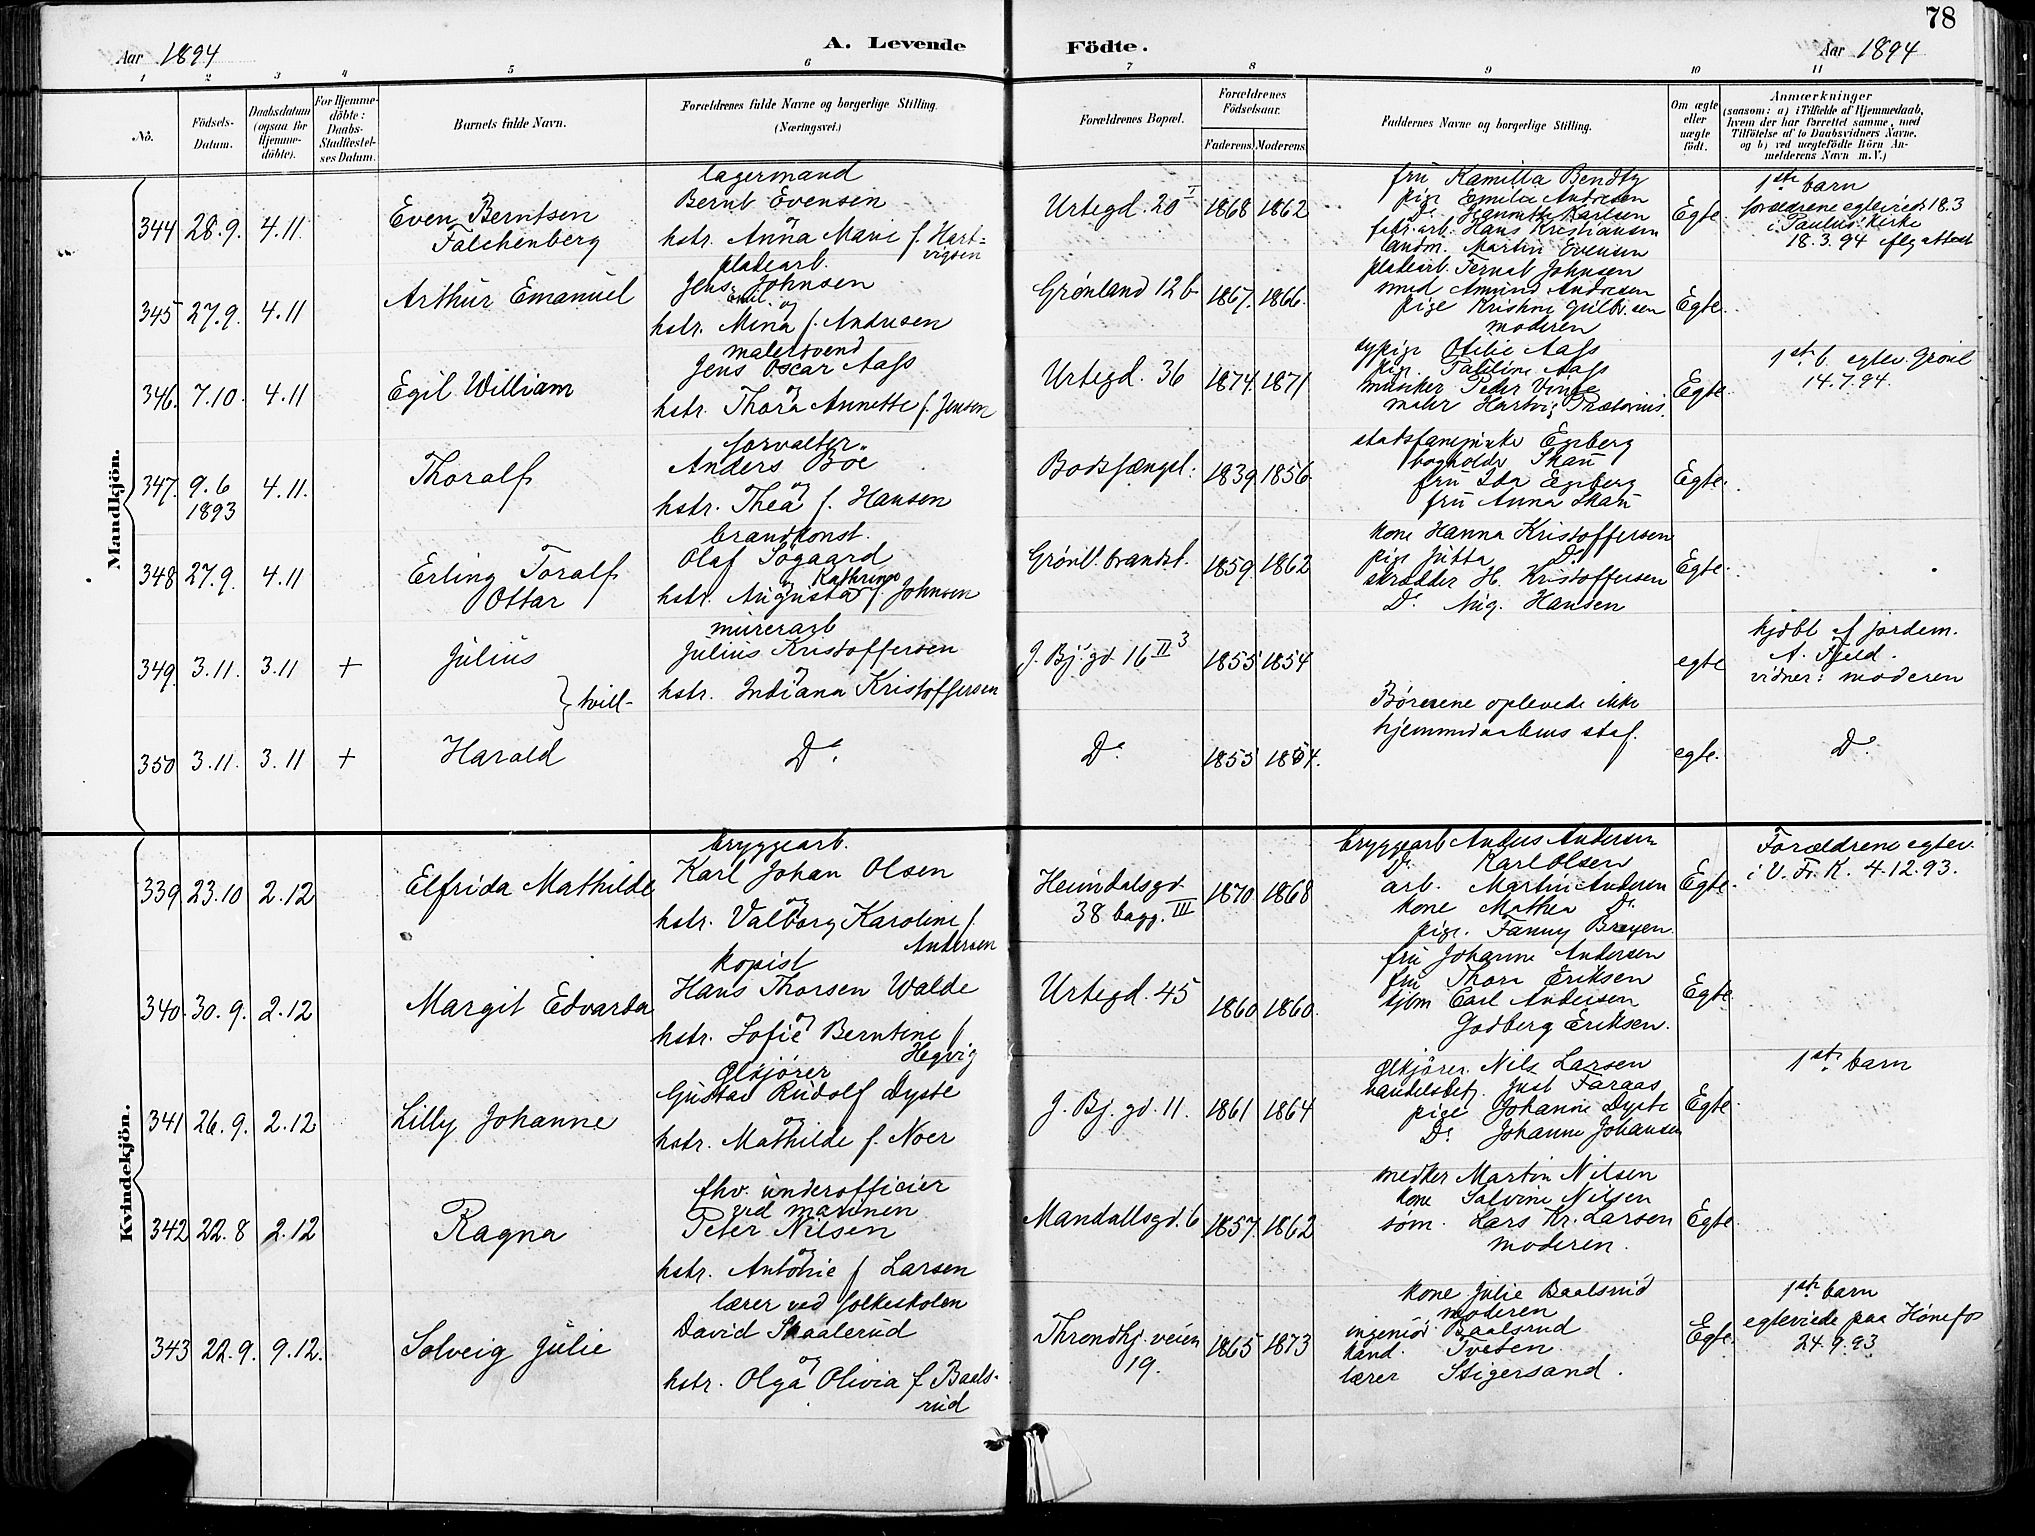 78
Aar 1894
A. Levende Födte.
Aar 1894
1 2 3 4 5 6 7 8 9 10 11
No.
Födsels-Datum.
Daabsdatum (ogsaa for Hjemme-döbte).
For Hjemme-döbte: Daabs-Stadfæstel-ses Datum.
Barnets fulde Navn.
Forældrenes fulde Navne og borgerlige Stilling.
(Næringsvei.)
Forældrenes Bopæl.
Forældrenes Födselsaar.
Faderens. Moderens.
Faddernes Navne og borgerlige Stilling.
Om ægte eller uægte födt.
Anmærkninger
(saasom: a) i Tilfælde af Hjemmedaab, hvem der har forrettet samme, med Tilföielse af to Daabsvidners Navne. og b) ved uægtefödte Börn An-melderens Navn m.V.)
Mandkjön.
344 28.9. 4.11
Even Berntsen
Falchenberg
lagermand
Bernt Evensen
og
hstr. Anna Marie f. Hart-
vigsen
Urtegd. 20 I
1868 1862
fru Kamilla Bendtz
pige Emilie Andresen
Do Jeanette Karlsen
fabr.arb. Hans Kristiansen
landm. Martin Evensen
Egte
1ste barn
forældrene egteviede 18.3
i Paulus Kirke
18.3.94 iflg attest
345 27.9. 4.11
Arthur Emanuel
pladearb.
Jens Emil Johnsen
og
hstr. Mina f. Andresen
Grønland 12b
1867. 1866.
pladearb. Johnsen
smed Amund Andresen
pige Kristine
moderen
Egte.
346. 7.10. 4.11
Egil William
malersvend
Jens Oscar Aass
og
hstr. Thora Annette f. Jensen
Urtegd. 36
1874. 1871
sypige Otilie Aass
pige Aass
musiker Peder Vinge
maler Hartvig Prætorius.
Egte
1ste b. egtev. Grønl
14.7.94.
347. 9.6 1893 4.11.
Thoralf
forvalter
Anders Boe
og
hstr. Thea f. Hansen
Bodsfængsl.
1839 1856
Egeberg
bogholder Skau
fru Ida Egeberg
fru Anna Skau
Egte.
348 27.9. 4.11
Erling Toralf
Ottar
brandkonst.
Olaf Søgaard
og
hstr. Augusta Kathrine f. Johnsen
Grønl. brandst.
1859 1862
kone Hanna Kristoffersen
pige Jutta Do
skrædder H. Kristoffersen
Do Aug. Hansen
Egte.
349. 3.11. 3.11 +
Julius
murerarb
Julius Kristoffersen
og
hstr. Indiana Kristoffersen
J. Bj. gd. 16 II 3
1855 1854
egte
kjdbt af jordem.
A. Fjeld.
vidner: moderen
} tvill-
Børnene oplevede ikke
hjemmedaabens staf.
350 3.11. 3.11 +
Harald
Do.
Do.
1855 1854.
egte.
Do
Kvindekjön.
339 23.10 2.12
Elfrida Mathilde
bryggearb.
Karl Johan Olsen
og
hstr. Valborg Karoline f.
Andersen
Heimdalsgd.
38 bagg. III
1870 1868
bryggearb Anders Andersen
Do Karl Olsen
arb. Martin Andersen
kone Mathea Do
pige. Fanny Brøyen.
Egte.
Forældrene egtev.
i V. Fr. K. 4.12.93.
340. 30.9. 2.12
Margit Edvarda
kopist
Hans Thorsen Walde
og
hstr. Sofie Berntine f
Hegvig
Urtegd. 45
1860 1860.
fru Johanne Andersen
fru Thora Eriksen
kjbm Carl Andersen
Godberg Eriksen.
Egte.
341 26.9. 2.12
Lilly Johanne
ølkjører
Gustav Rudolf Dyste
og
hstr. Mathilde f. Noer
J. Bj. gd. 11.
1861 1864
ølkjører. Nils Larsen
handelsbetj. Just Faraas
pige Johanne Dyste
Do. Johanne Johansen
Egte.
1ste barn
342 22.8 2.12
Ragna
fhv. underofficier
ved marinen
Peter Nilsen
og
hstr. Antonie f Larsen
Mandallsgd. 6
1857. 1862
snedker Martin Nilsen
kone Salvine Nilsen
søm. Lars Kr. Larsen
moderen.
Egte.
343 22.9. 9.12.
Solveig Julie
lærer ved folkeskolen
David Skaalerud
og
hstr. Olga Olivia f. Baals-
rud
Throndhj. veien
19.
1865 1873
kone Julie Baalsrud
moderen
ingeniør Baalsrud
kand. Tveten.
lærer Stigersand.
Egte.
1ste barn
egteviede paa Hønefos
24.9.93